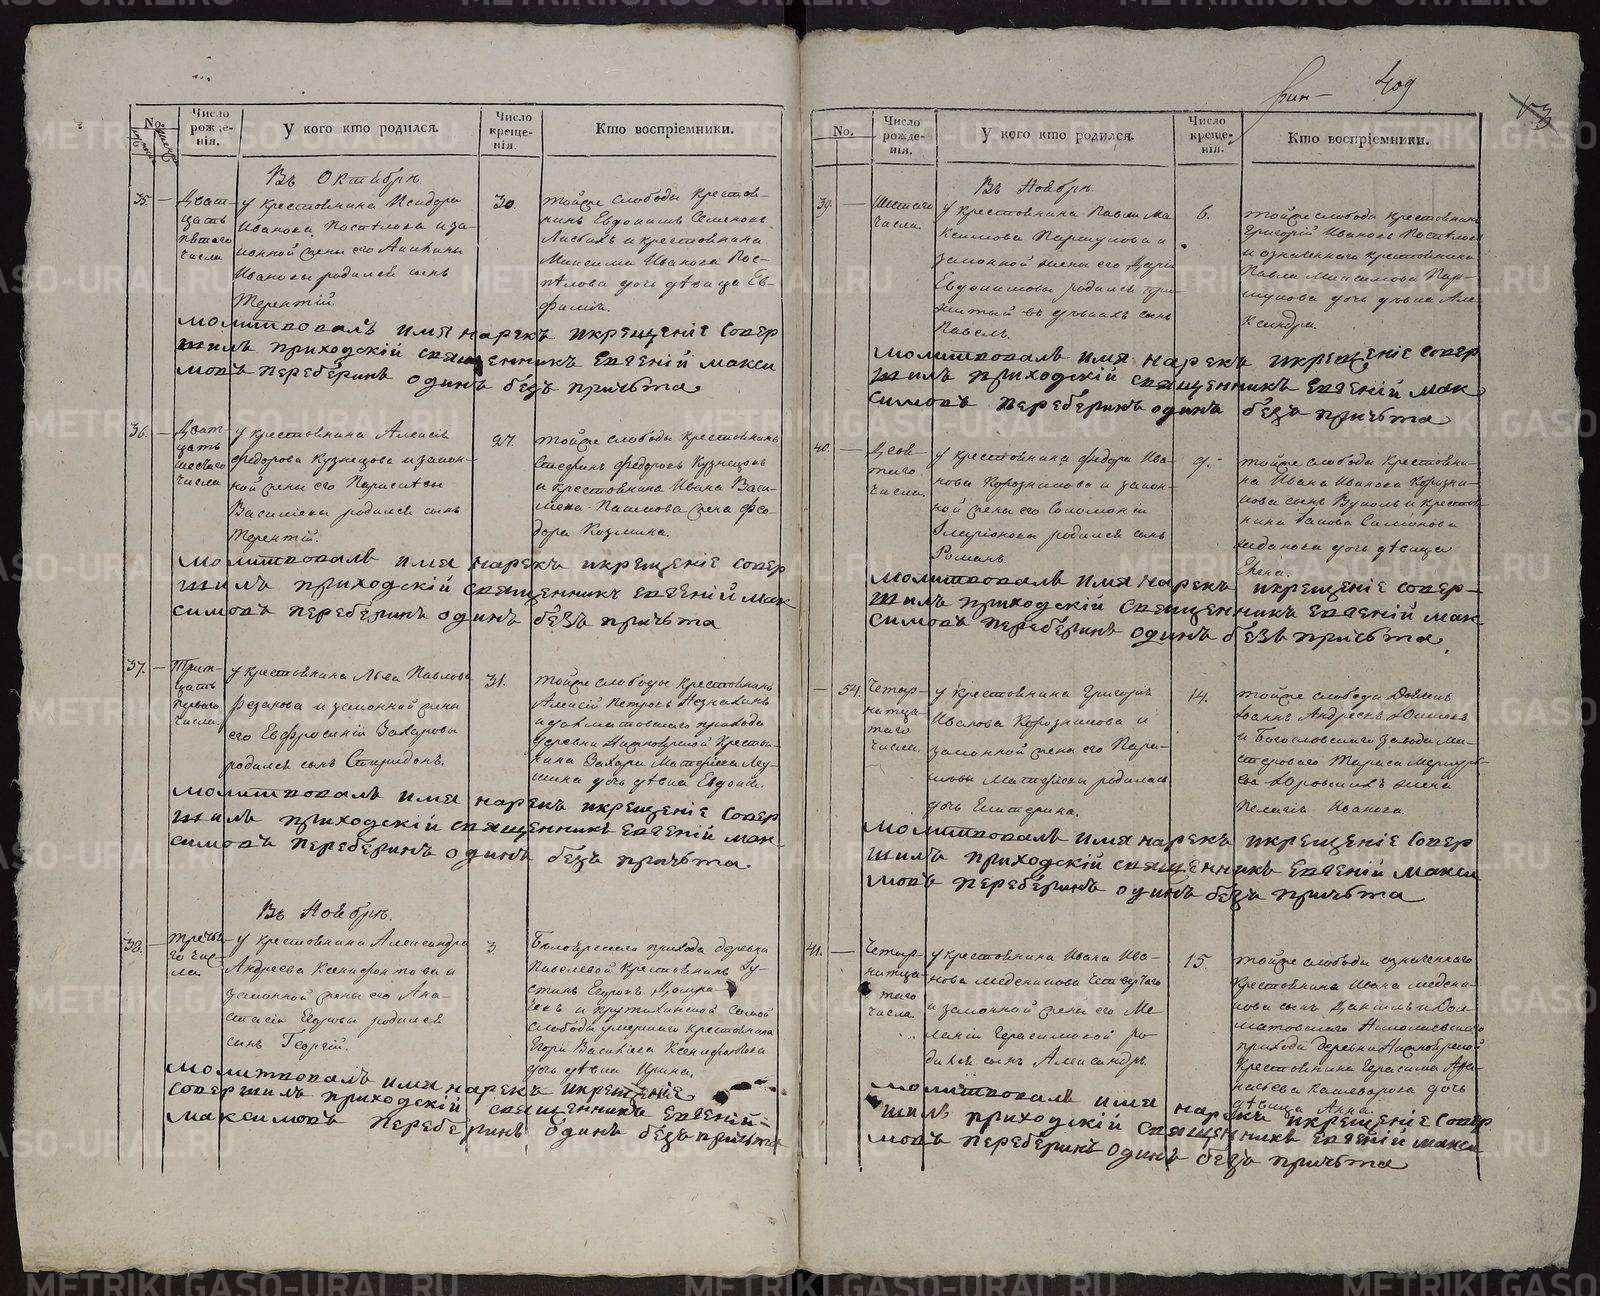 No.
Число рожде-нія.
У кого кто родился.
Число креще-нія.
Кто воспріемники.
Въ Октябрѣ.
35.
Дват-
цать
пятаго
числа
у крестьянина Исидора
Иванова Поспѣлова и за-
конной жены его
Ивановы родился сынъ
Терентій.
30.
тойже слободы крестья-
нинъ Евдокимъ Семеновъ
и крестьянина
Максима Иванова Пос-
пѣлова дочь дѣвица Ев-
фимія.
молитвовалъ имя нарекъ икрещеніе совер
шилъ приходскій священникъ Евгеній макси
мовъ переберинъ одинъ безъ причьта
36.
Дват-
цать
шестаго
числа
у крестьянина Алексія
Федорова Кузнецова и закон-
ной жены его Параскевы
Василіевы родился сынъ
Терентій.
27.
тойже слободы крестьянинъ
Стефанъ Федоровъ Кузнецовъ
и крестьянина Ивана Васи-
Пашкова жена Фео-
дора Козмина.
молитвовалъ имя нарекъ икрещеніе совер
шилъ приходскій священникъ Евгеній мак
симовъ переберинъ одинъ безъ причьта
37.
Трит-
цать
перваго
числа
у крестьянина Льва Павлова
и законной жены
его Евфросиніи Захаровы
родился сынъ Спиридонъ.
31.
тойже слободы крестьянинъ
Алексій Петровъ
и далматовскаго прихода
деревни Нижнеярской крестья-
нина Захара Матфіева
дочь дѣвица Евдокія.
молитвовалъ имя нарекъ икрещеніе совер
шилъ приходскій священникъ Евгеній мак
симовъ переберинъ одинъ безъ причьта
Въ Ноябрѣ.
38.
третья-
го чис-
ла
у крестьянина Александра
Андреева Ксенофонтова и
законной жены его Ана-
стасіи Егоровы родился
сынъ Георгій.
3
прихода деревни
Павелевой крестьянинъ Іу-
стинъ Егоровъ
и крутихинской самой
слободы умершаго крестьянина
Егора Васильева Ксенофонтова
дочь дѣвица Ирина.
молитвовалъ имя нарекъ икрещеніе
совершилъ приходскій священникъ Евгеній
максимовъ переберинъ одинъ безъ причьта
409
No.
Число рожде-нія.
У кого кто родился.
Число креще-нія.
Кто воспріемники.
Въ Ноябрѣ.
39.
Шестаго
числа.
у крестьянина Павла Ма-
ксимова Паршукова и
законной жены его Дарьи
Евдокимовы родился при-
житый въ сынъ
Павелъ.
6.
тойже слободы крестьянинъ
Григорій Ивановъ Поспѣловъ
и означеннаго крестьянина
Павла Максимова Пар-
шукова дочь дѣвица Але-
ксандра.
молитвовалъ имя нарекъ икрещеніе совер
шилъ приходскій священникъ Евгеній мак
симовъ переберинъ одинъ безъ причьта
40.
Девя-
таго
числа.
у крестьянина Федора Ива-
нова Корозникова и закон-
ной жены его Соломоніи
Иларіонова родился сынъ
Романъ.
9.
тойже слободы крестьяни-
на Ивана Иванова Корозни-
кова сынъ Вуколъ и крестья-
нина Симонова
дочь дѣвица
Елена.
молитвовалъ имя нарекъ икрещеніе совер-
шилъ приходскій священникъ Евгеній мак
симовъ переберинъ одинъ безъ причьта.
54.
Четыр-
натца-
таго
числа.
у крестьянина Григорія
Иванова Корозникова и
законной жены его Пара-
Матфіевы родилась
дочь Екатерина.
14.
тойже слободы
Іоаннъ Андреевъ
и Богословскаго завода ма-
стероваго Тараса
жена
Пелагія Иванова.
молитвовалъ имя нарекъ икрещеніе совер
шилъ приходскій священникъ Евгеній макси
мовъ переберинъ одинъ безъ причьта
41.
Четыр-
натца-
таго
числа
у крестьянина Ивана Ива-
нова
и законной жены его Ме-
ланіи Герасимовой ро-
дился сынъ Александръ.
15.
тойже слободы означеннаго
крестьянина Ивана
сынъ Даніилъ и Дал-
матовскаго Николаевскаго
прихода деревни Нижнеярской
крестьянина Герасима Афа-
насьева дочь
дѣвица Анна.
молитвовалъ имя нарекъ икрещеніе совер
шилъ приходскій священникъ Евгеній макси
мовъ переберинъ одинъ безъ причьта
METRIKI.GASO-URAL.RU